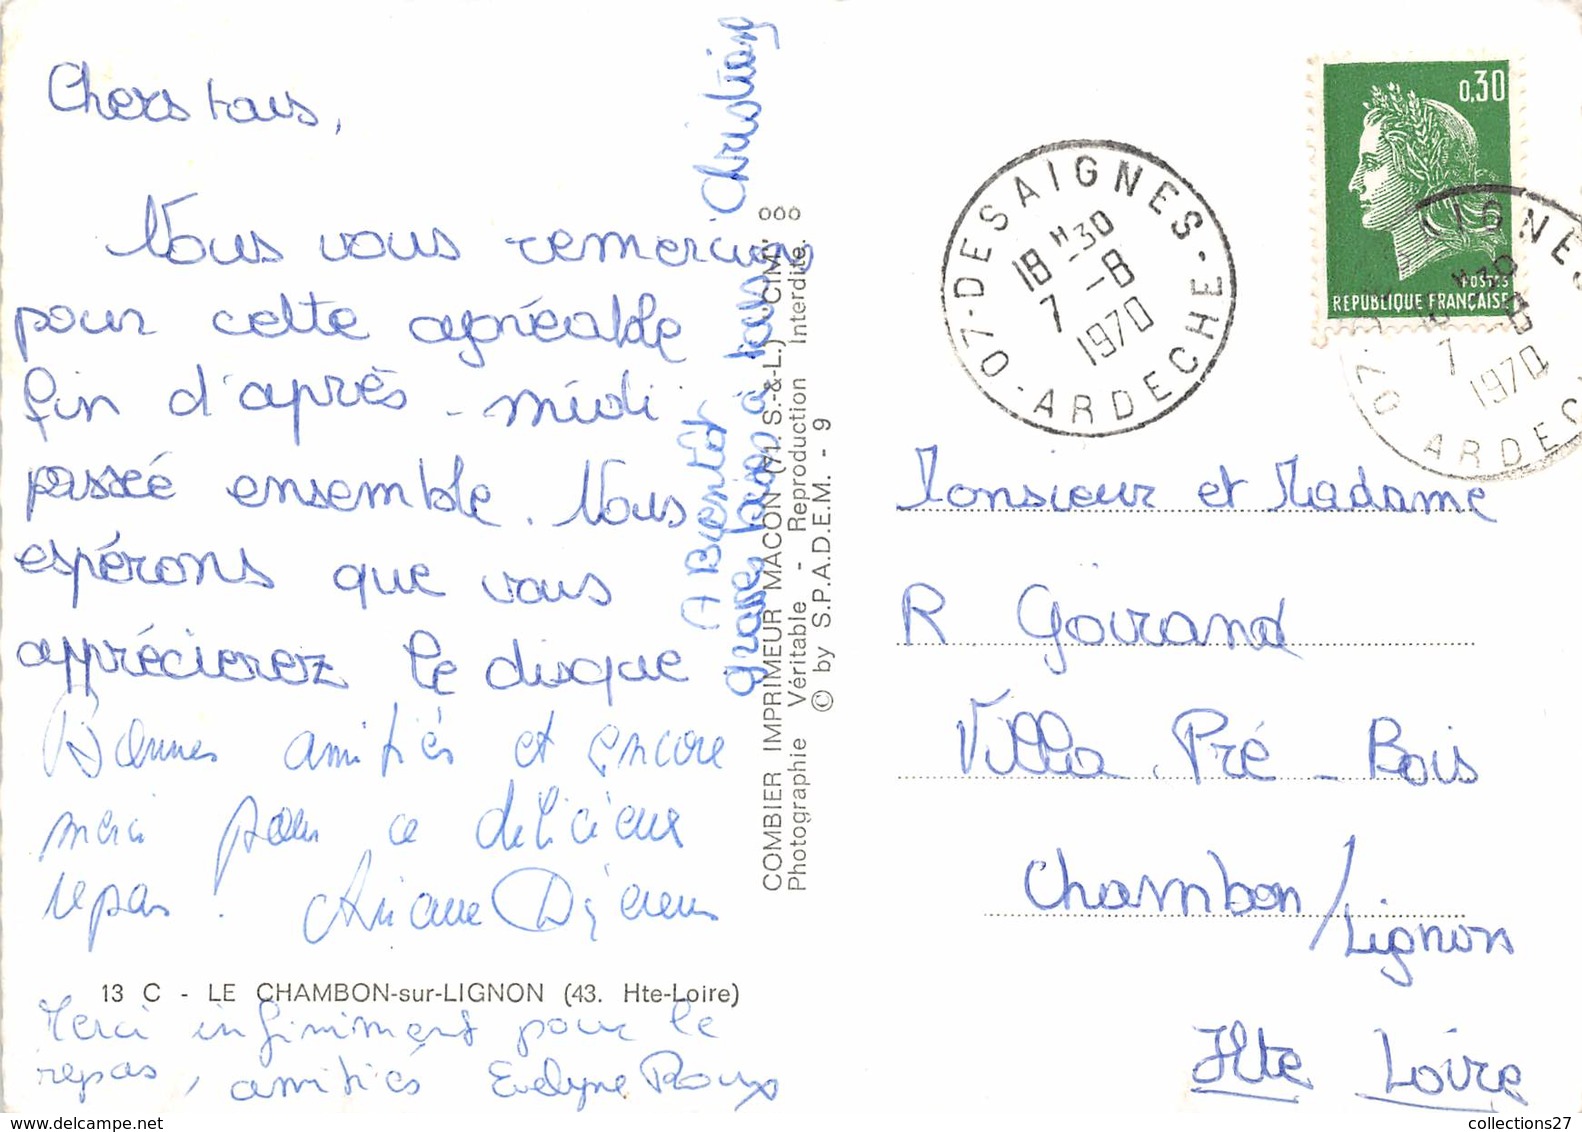 Chers tous,
Nous vous remercions
pour cette agréable
fin d'après-midi
passée ensemble. Nous
espérons que vous
apprécierez le disque
Bonnes amitiés et encore
merci pour ce délicieux
repas ! Ariane
13 C - LE CHAMBON-sur-LIGNON (43. Hte-Loire)
Merci infiniment pour le
repas, amitiés Evelyne Roux
A Bientôt
gros bises à tous Christian
COMBIER IMPRIMEUR MACON (71. S.-&-L.) "CIM" ooo
Photographie Véritable - Reproduction Interdite.
© by S.P.A.D.E.M. - 9
07-DESAIGNES-
18 H 30
7 -8
1970
-ARDECHE
0,30
POSTES
REPUBLIQUE FRANÇAISE
AIGNES
H 30
7 -8
1970
07
ARDEC
Monsieur et Madame
R Goirand
Villa Pré-Bois
Chambon/Lignon
Hte Loire
collections27